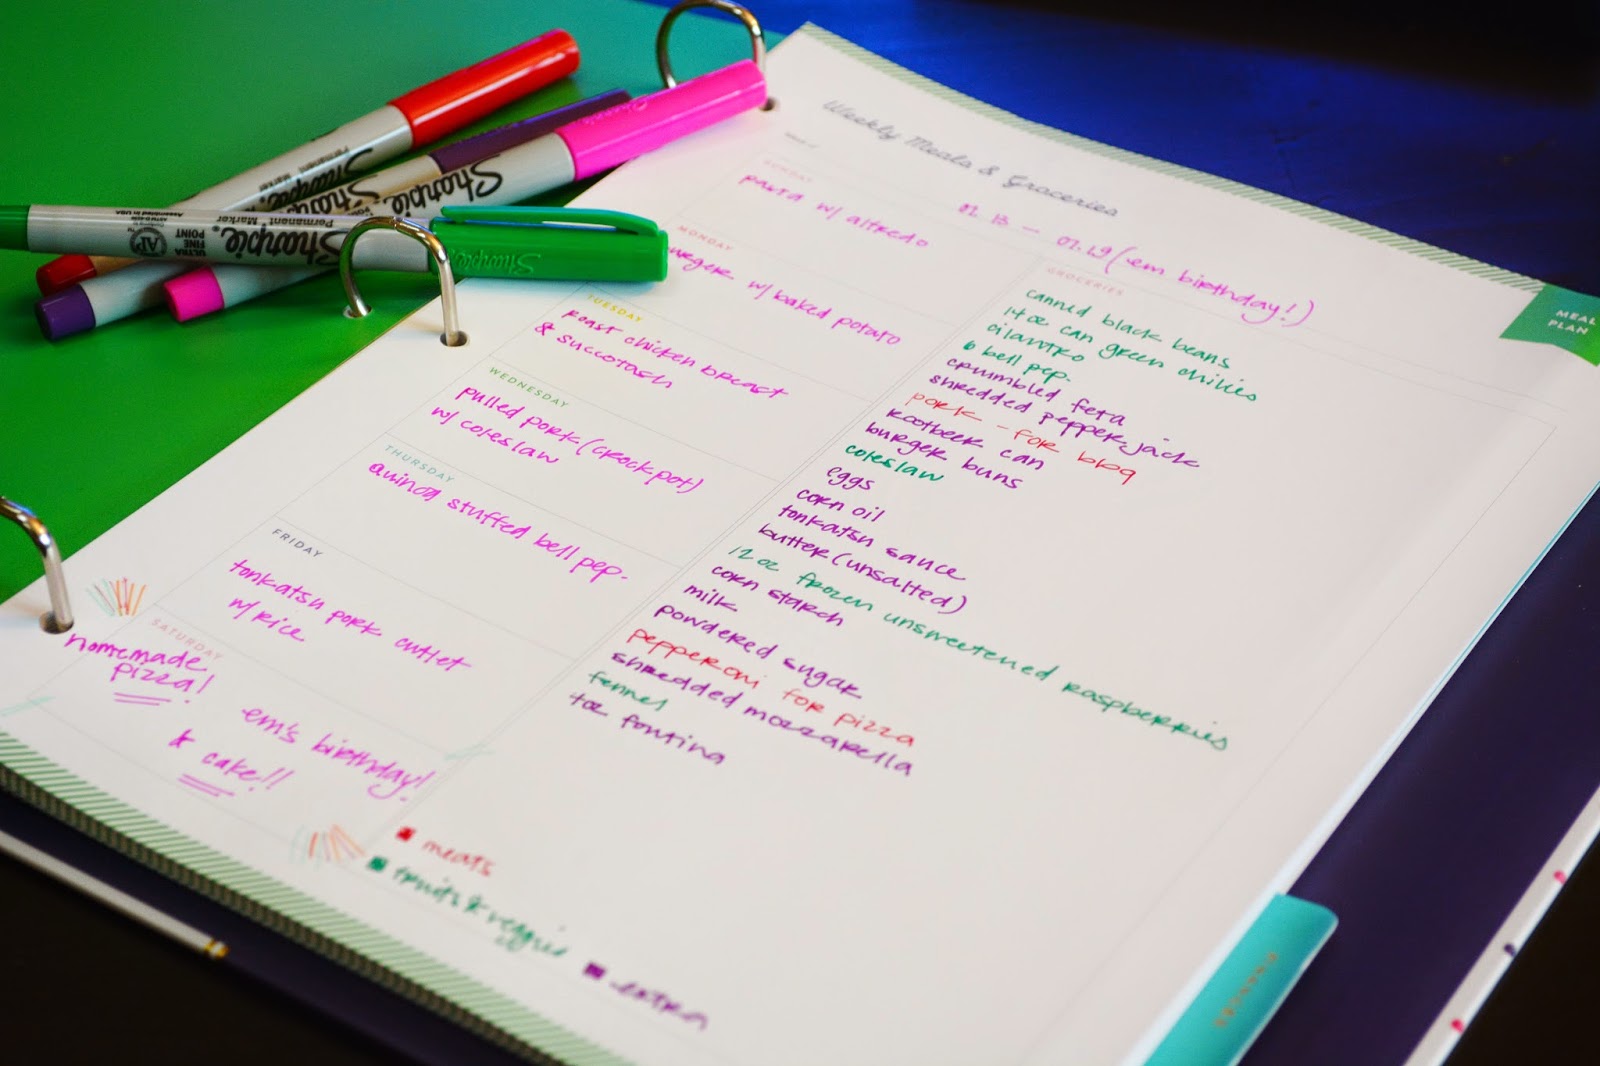 Sharpie
Permanent Marker
Sharpie
Sharpie
Sharpie.
Permanent Marker
Assembled in USA
AP
ULTRA FINE
POINT
Sharpie
Weekly Meals & Groceries
02.13 — 02.19 (em birthday!)
SUNDAY
pasta w/ alfredo
MONDAY
burger w/ baked potato
TUESDAY
roast chicken breast
& succotash
WEDNESDAY
pulled pork (crockpot)
w/ coleslaw
THURSDAY
quinoa stuffed bell pep.
FRIDAY
tonkatsu pork cutlet
w/ rice
SATURDAY
homemade
pizza!
em's birthday!
& cake!!
GROCERIES
canned black beans
14 oz can green chilies
cilantro
6 bell pep.
crumbled feta
shredded pepperjack
pork - for bbq
rootbeer can
burger buns
coleslaw
eggs
corn oil
tonkatsu sauce
butter (unsalted)
12 oz frozen unsweetened raspberries
corn starch
milk
powdered sugar
pepperoni for pizza
shredded mozzarella
fennel
fontina
meats
fruits & veggie
extra
MEAL
PLAN
FINANCES